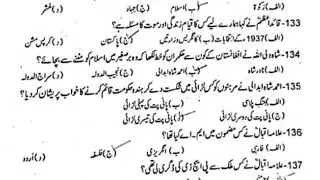 (الف) زکوٰۃ (ب) اسلام (ج) جہاد (د) عشر
133- قائداعظمؒ نے کہا ہمارے لیے کس کا قیام زندگی اور موت کا مسئلہ ہے؟
(الف) 1937ء کے انتخابات (ب) کانگریس وزارتیں (ج) پاکستان (د) کرپس مشن
134- شاہ ولی اللہ نے افغانستان کے کون سے حکمران کو خط لکھا کہ وہ برصغیر میں اسلام کو مٹنے سے بچائے؟
(الف) نادر شاہ (ب) احمد شاہ ابدالی (ج) نجیب الدولہ (د) سراج الدولہ
135- احمد شاہ ابدالی نے مرہٹوں کو کس لڑائی میں شکست دے کر ہندو حکومت قائم کرنے کا خواب پریشان کر دیا؟
(الف) جنگ پلاسی (ب) پانی پت کی پہلی لڑائی
(ج) پانی پت کی دوسری لڑائی (د) پانی پت کی تیسری لڑائی
136- علامہ اقبالؒ نے کس مضمون میں ایم۔اے کیا تھا؟
(الف) فارسی (ب) انگریزی (ج) فلسفہ (د) اُردو
137- علامہ اقبالؒ نے کس ملک سے پی ایچ ڈی کی ڈگری لی تھی؟